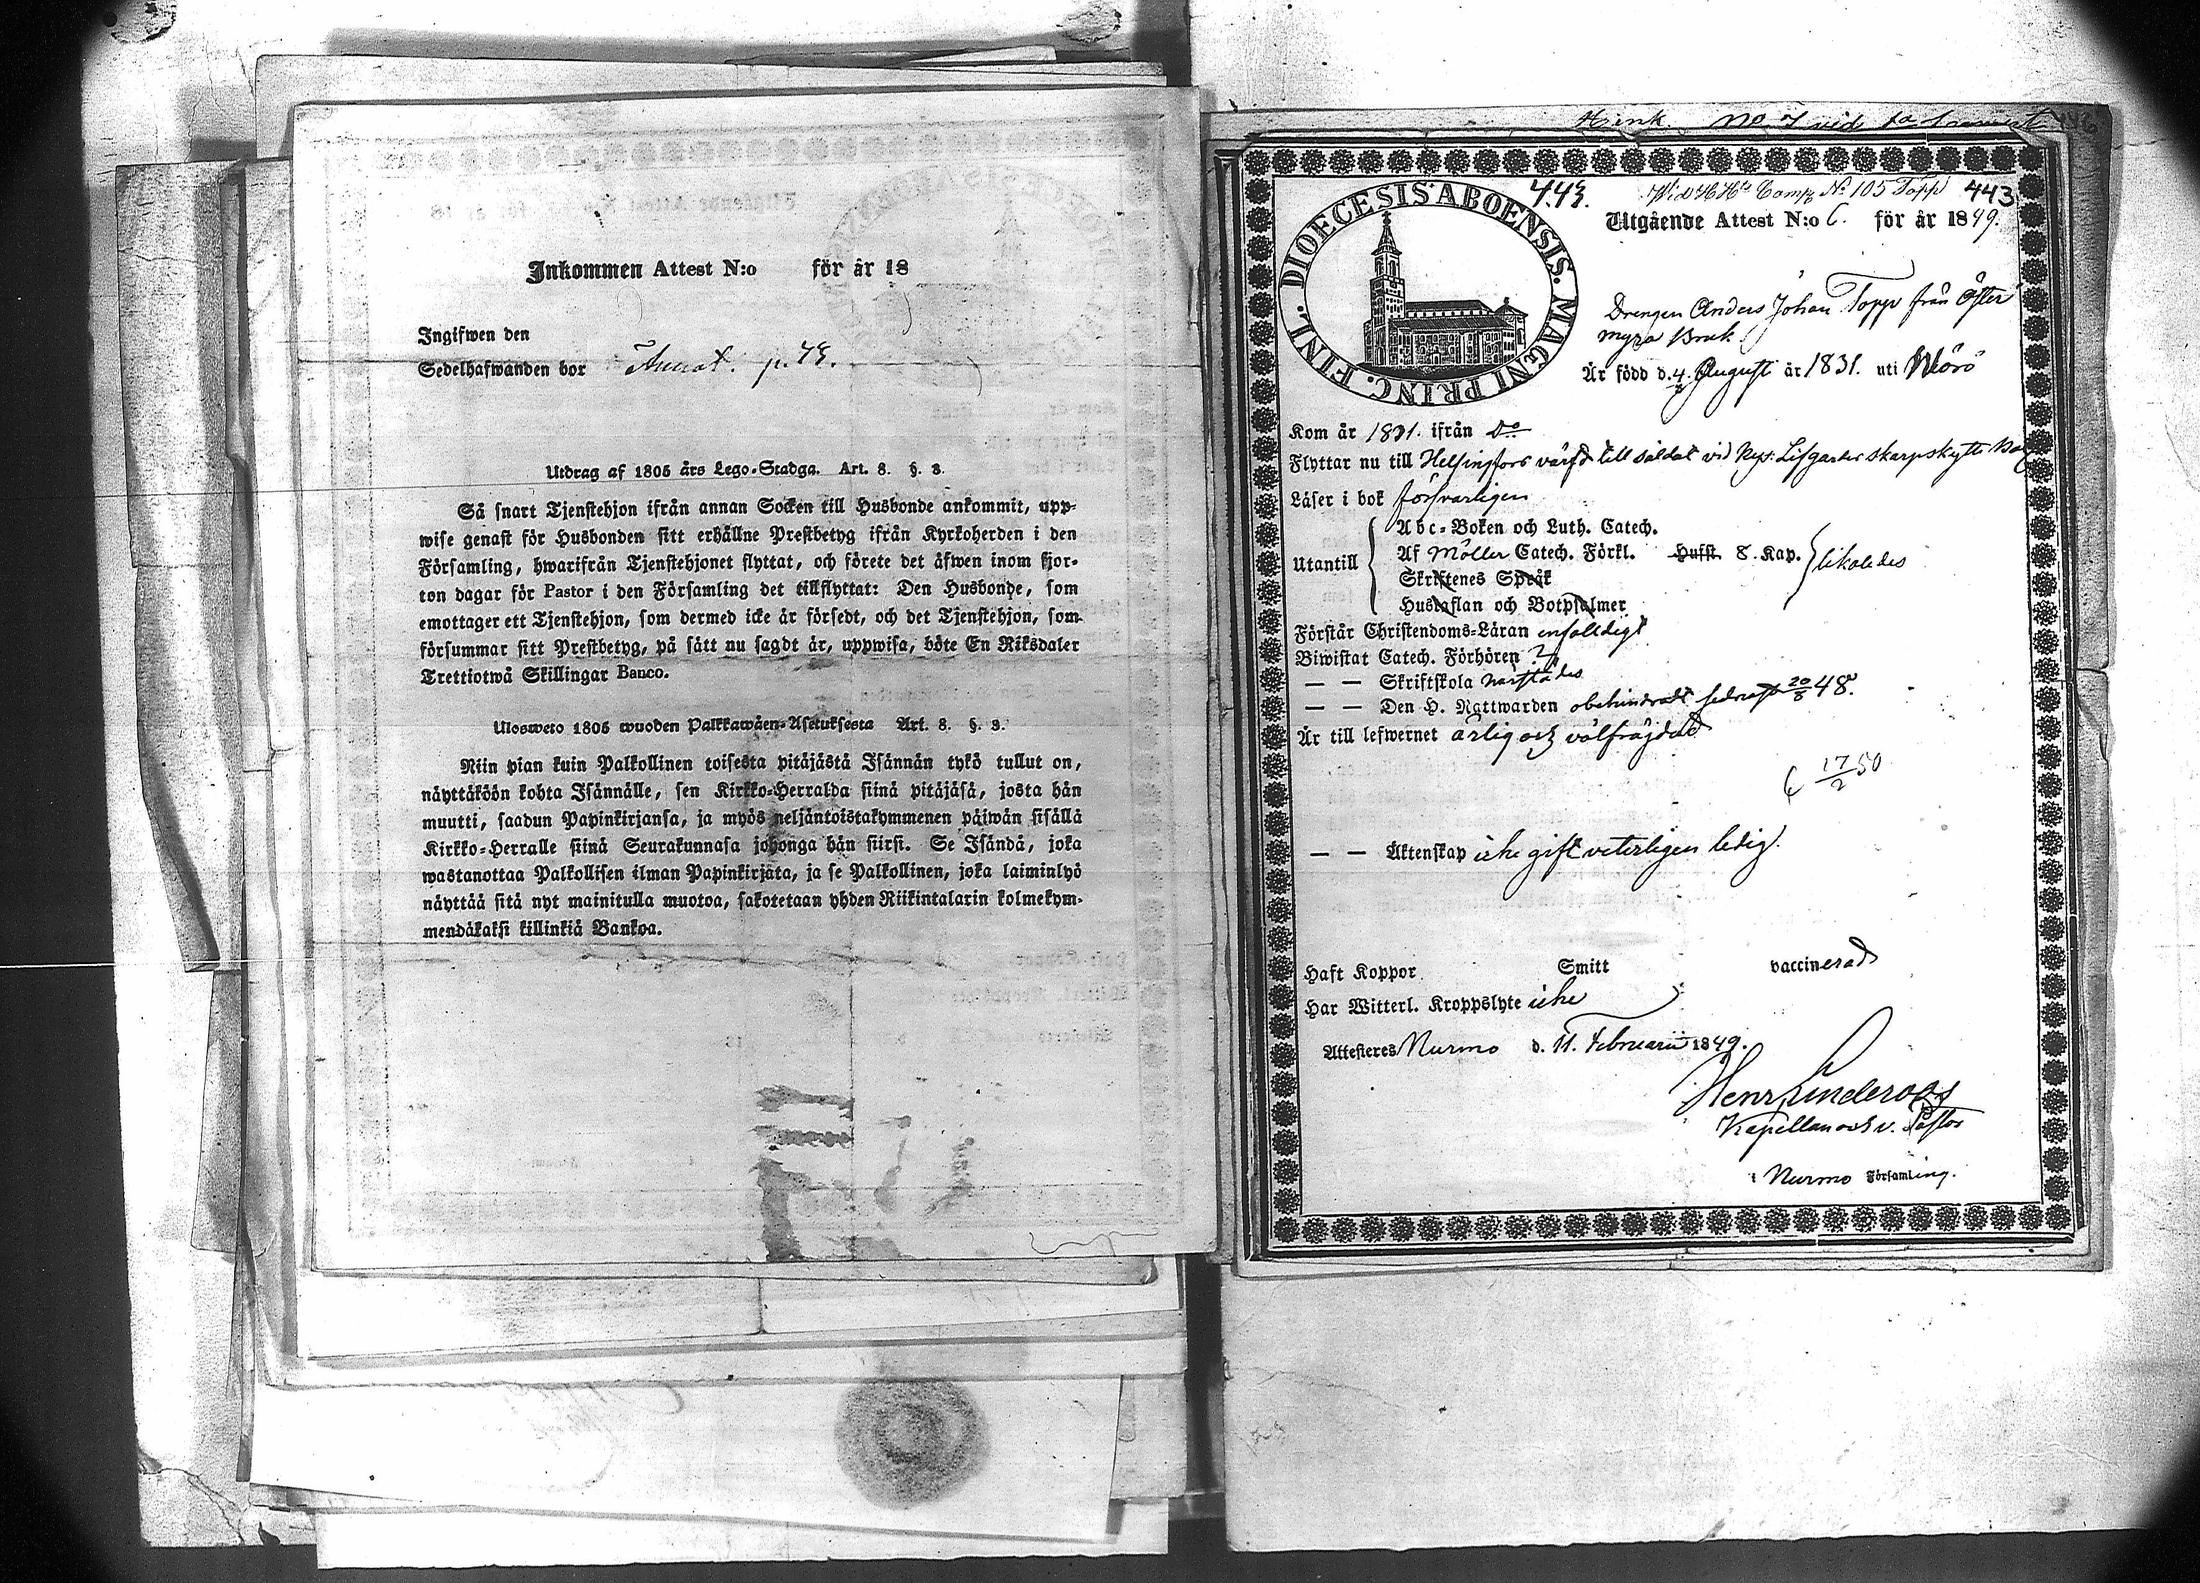 Inkommen Attest N:o för år 18
Ingifwen den
Sedelhafwanden bor Annot. p. 48.
Utdrag af 1805 års Lego-Stadga. Art. 8. §. 3.
Så snart Tjenstehjon ifrån annan Socken till Husbonde ankommit, upp-
wise genast för Husbonden sitt erhållne Prestbetyg ifrån Kyrkoherden i den
Församling, hwarifrån Tjenstehjonet flyttat, och förete det äfwen inom fjor-
ton dagar för Pastor i den Församling det tillflyttat: Den Husbonde, som
emottager ett Tjenstehjon, som dermed icke är försedt, och det Tjenstehjon, som
försummar sitt Prestbetyg, på sätt nu sagdt är, uppwisa, böte En Riksdaler
Trettiotwå Skillingar Banco.
Ulosweto 1805 wuoden Palkkawäen-Asetuksesta Art. 8. §. 3.
Niin pian kuin Palkollinen toisesta pitäjästä Isännän tykö tullut on,
näyttäköön kohta Isännälle, sen Kirkko-Herralda siinä pitäjäsä, josta hän
muutti, saadun Papinkirjansa, ja myös neljäntoistakymmenen päiwän sisällä
Kirkko-Herralle siinä Seurakunnasa johonga hän siirsi. Se Isändä, joka
wastanottaa Palkollisen ilman Papinkirjäta, ja se Palkollinen, joka laiminlyö
näyttää sitä nyt mainitulla muotoa, sakotetaan yhden Riikintalarin kolmekym-
mendäkaksi killinkiä Bankoa.
No 7 vid
DIOECESIS ABOENSIS. MAGNI PRINC. FINL.
448. Wid H. Hs Comp. No 105 Topp 443
Utgående Attest N:o 6. för år 1849.
Drengen Anders Johan Topp från Öster
myra Bruk
Är född d. 4 Augusti år 1831. uti Wörö
Kom år 1831. ifrån Do
Flyttar nu till Helsingfors värfd till soldat vid Kejs: Lifgardes skarpskytte Ba
Läser i bok försvarligen
Utantill
Abc-Boken och Luth. Catech.
Af Möller Catech. Förkl. Husst. 8. Kap. likaledes
Skriftenes Språk
Hustaflan och Botpsalmer
Förstår Christendoms-Läran enfaldigt
Biwistat Catech. Förhören ?
— — Skriftskola närstädes
— — Den H. Nattwarden obehindradt sednast 20/8 48.
Är till lefwernet ärlig och välfräjdad
17/2 50
— — Äktenskap icke gift veterligen ledig.
Haft Koppor Smitt vaccinerad
Har Witterl. Kroppslyte icke
Attesteres Nurmo d. 11. Februarii 1849.
Henr. Linderoos
Kapellan och v. Pastor
i Nurmo Församling.